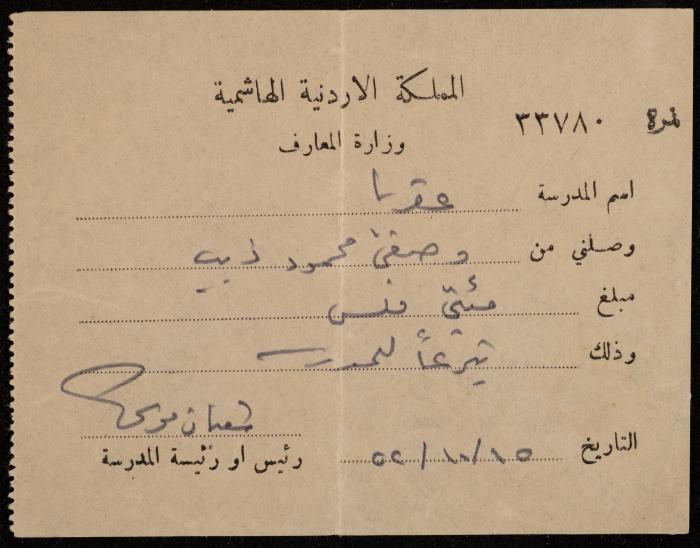 المملكة الاردنية الهاشمية
نمرة ٣٣٧٨٠
وزارة المعارف
اسم المدرسة عقربا
وصلني من وصفي محمود ذيب
مبلغ مئتي فلس
وذلك تبرعاً للمدرسة
التاريخ
رئيس او رئيسة المدرسة